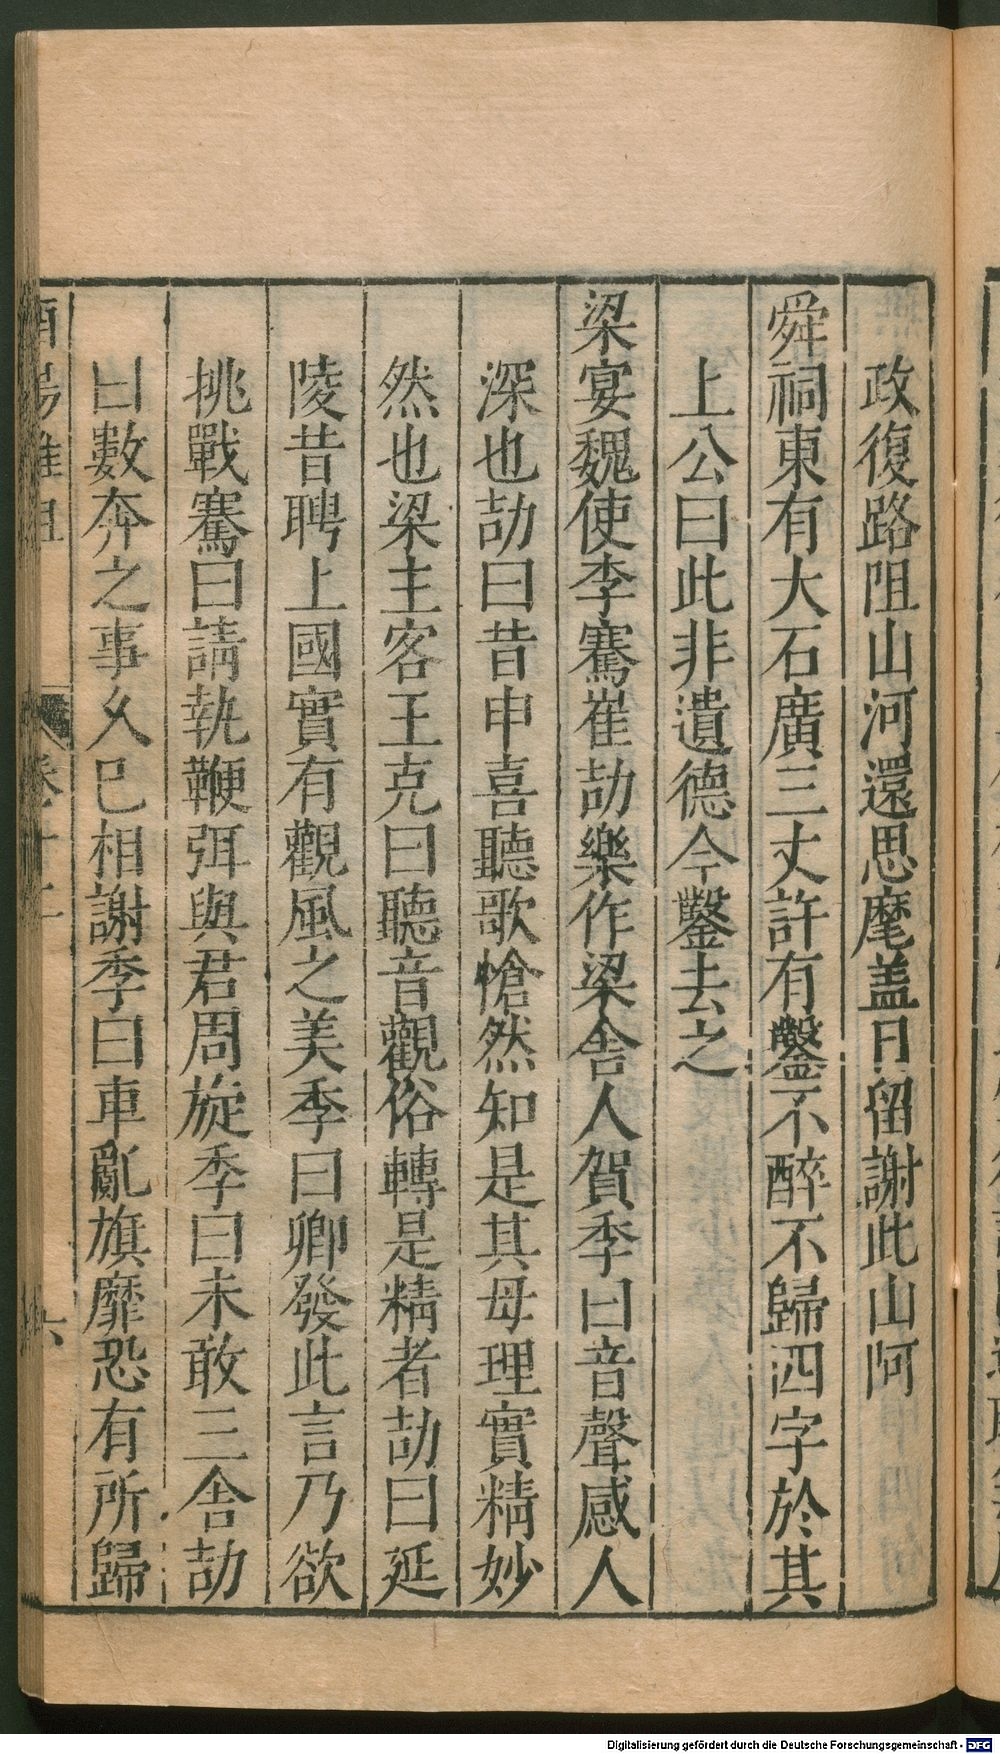 政復路阻山河還思麾盖日留謝此山阿
舜祠東有大石廣三丈許有鑿不醉不歸四字於其
上公曰此非遺德令鑿去之
梁宴魏使李騫崔劼樂作梁舍人賀季曰音聲感人
深也劼曰昔申喜聽歌愴然知是其母理實精妙
然也梁主客王克曰聽音觀俗轉是精者劼曰延
陵昔聘上國實有觀風之美季曰卿發此言乃欲
挑戰騫曰請執鞭弭與君周旋季曰未敢三舍劼
曰數奔之事久巳相謝季曰車亂旗靡恐有所歸
酉陽雜俎
卷十二
六
Digitalisierung gefördert durch die Deutsche Forschungsgemeinschaft - DFG